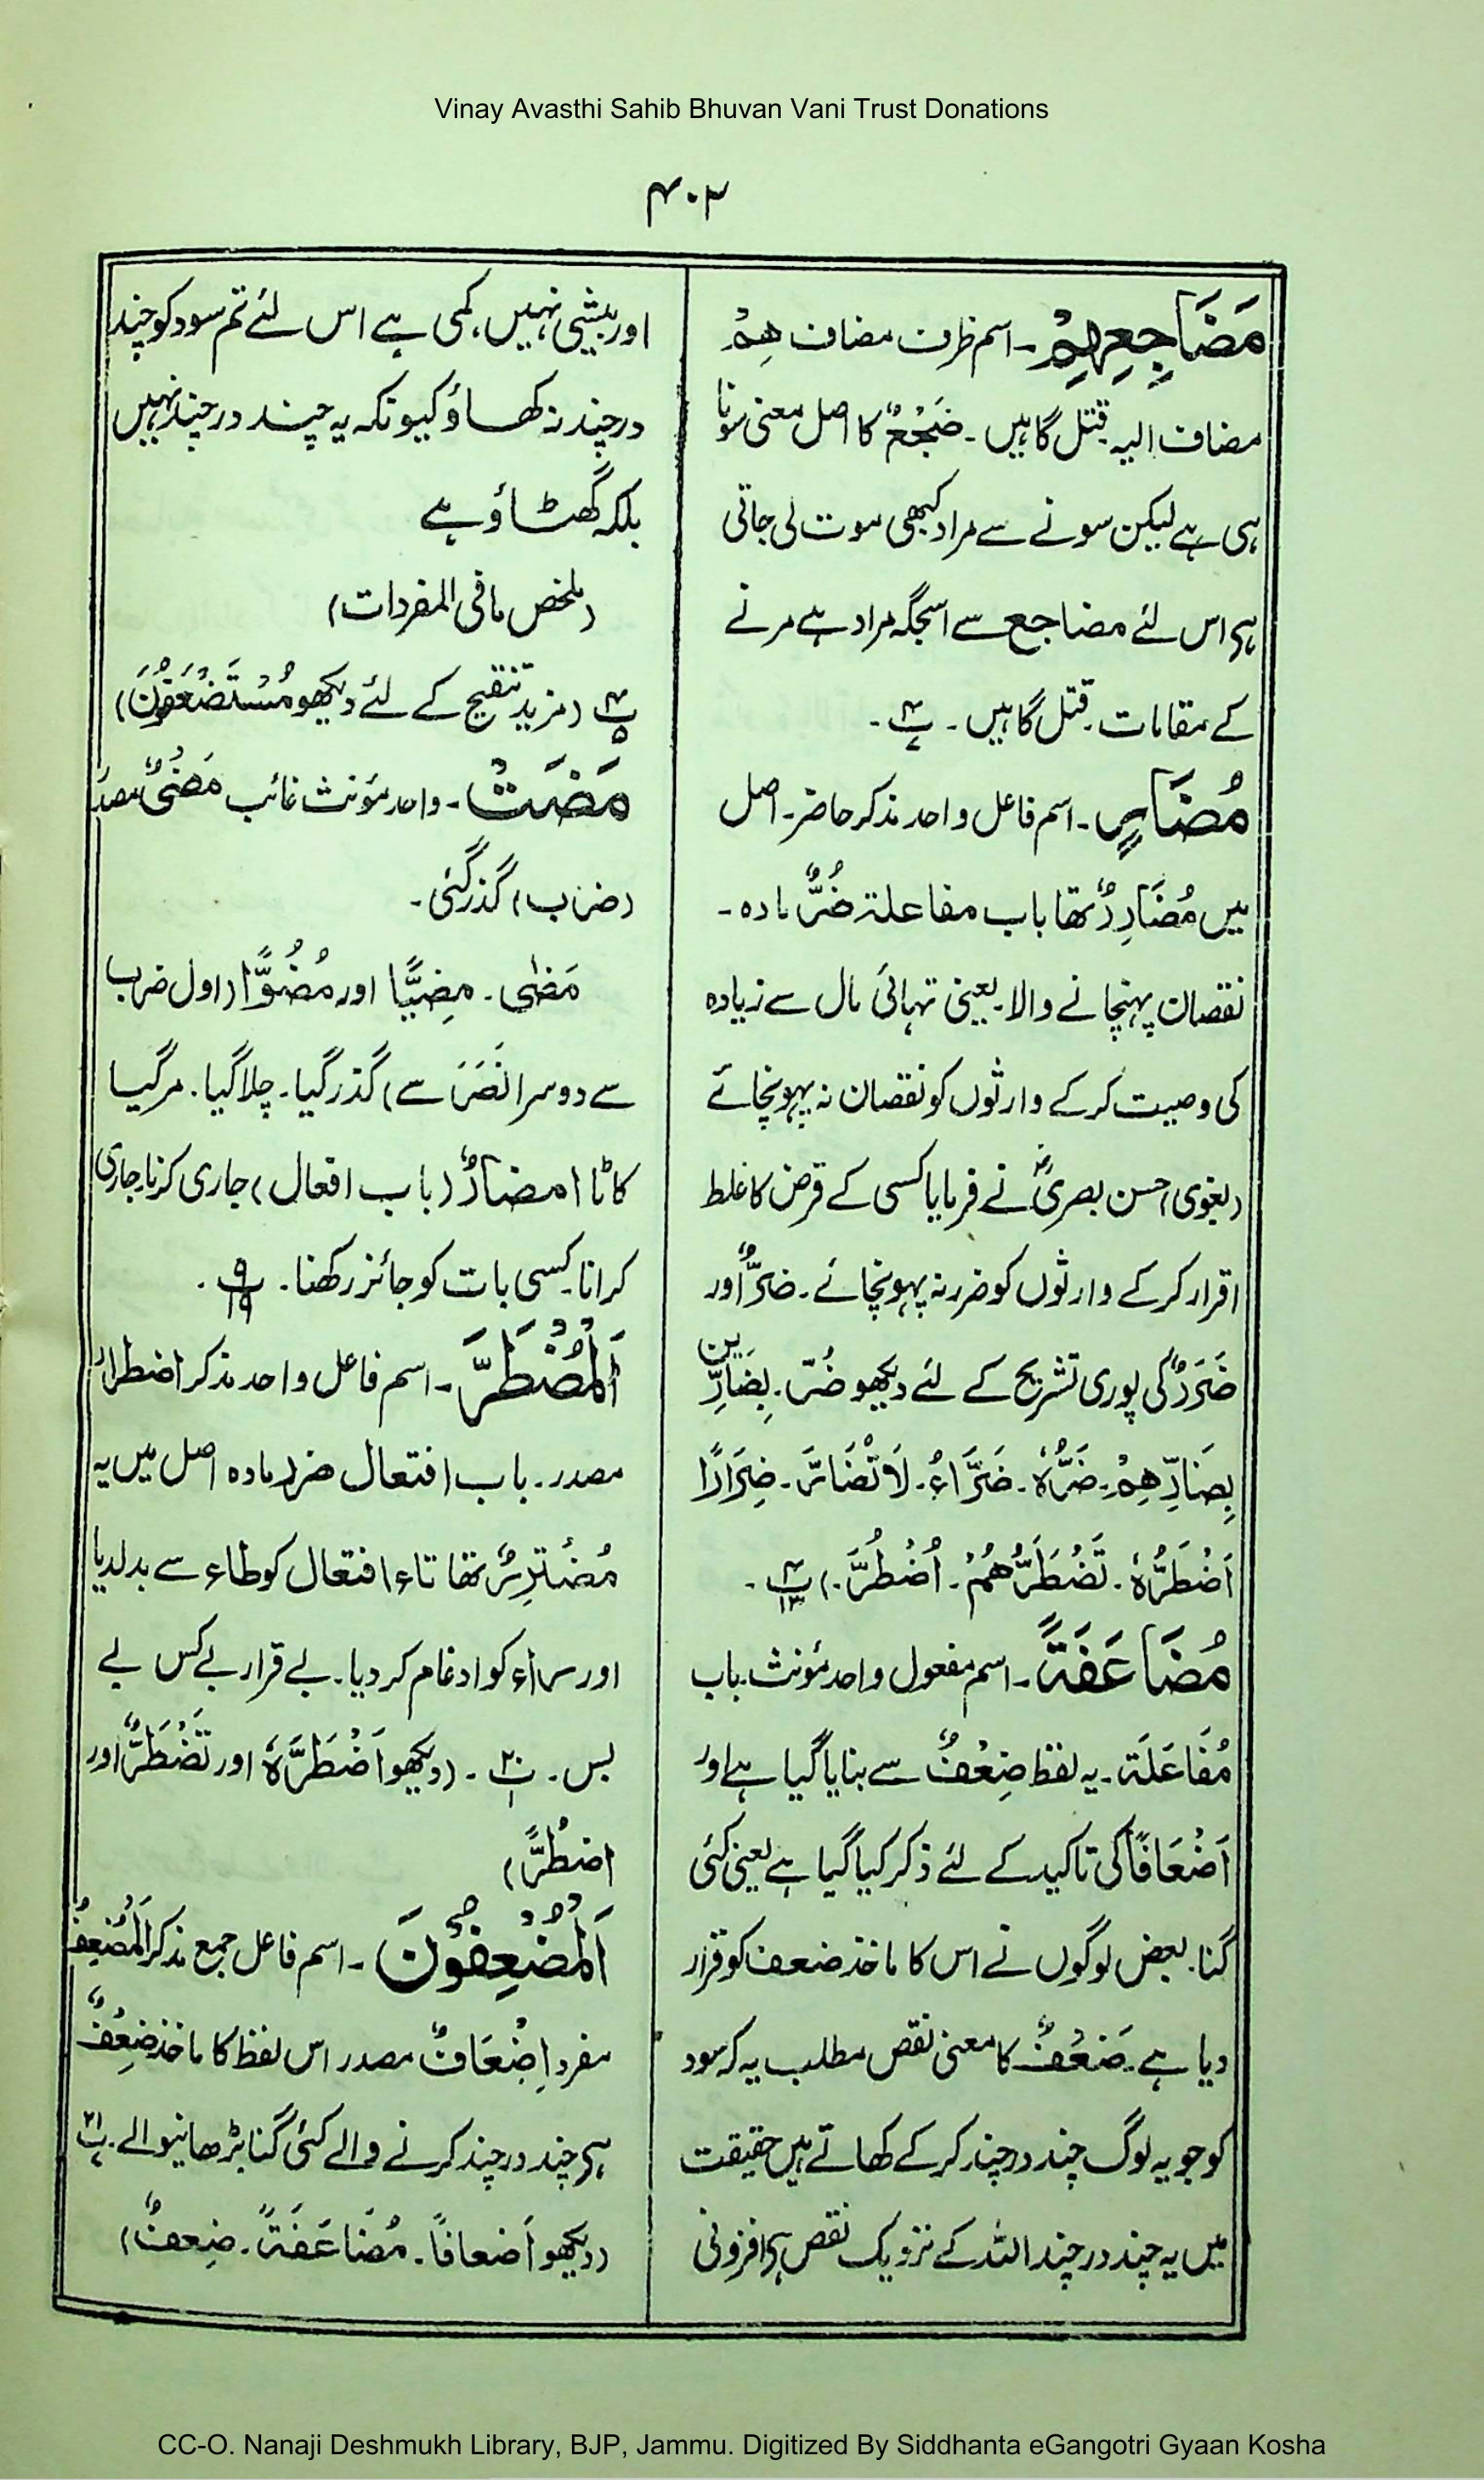 Vinay Avasthi Sahib Bhuvan Vani Trust Donations
۴۰۲
مَضَاجِعِهِمْ۔ اسم ظرف مضاف هِمْ
مضاف الیہ قتل گاہیں۔ ضَجْعٌ کا اصل معنی سونا
ہی ہے لیکن سونے سے مراد کبھی موت لی جاتی
ہے اس لئے مضاجع سے اسجگہ مراد ہے مرنے
کے مقامات۔ قتل گاہیں۔
مُضَارٍّ۔ اسم فاعل واحد مذکر حاضر۔ اصل
میں مُضَارِرٌ تھا باب مفاعلة ضُرٌّ مادہ۔
نقصان پہنچانے والا۔ یعنی تہائی مال سے زیادہ
کی وصیت کرکے وارثوں کو نقصان نہ پہونچائے
(بغوی) حسن بصریؒ نے فرمایا کسی کے قرض کا غلط
اقرار کرکے وارثوں کو ضرر نہ پہونچائے۔ ضَرٌّ اور
ضَرَرٌ کی پوری تشریح کے لئے دیکھو ضُرّ۔ بِضَارِّینَ
بِضَارِّهِمْ۔ ضَرُّهٗ۔ ضَرَّاءُ۔ لَا تُضَارَّ۔ ضِرَارًا
اَضْطَرُّهٗ۔ نَضْطَرُّهُمْ۔ اُضْطُرَّ۔)
مُضَاعَفَةً۔ اسم مفعول واحد مؤنث۔ باب
مُفَاعَلَة۔ یہ لفظ ضِعْفٌ سے بنایا گیا ہے اور
اَضْعَافًا کی تاکید کے لئے ذکر کیا گیا ہے یعنی کئی
گنا۔ بعض لوگوں نے اس کا ماخذ ضعف کو قرار
دیا ہے۔ ضَعْفٌ کا معنی نقص مطلب یہ کہ سود
کو جو یہ لوگ چند در چند کرکے کھاتے ہیں حقیقت
میں یہ چند در چند اللہ کے نزدیک نقص ہے افزونی
اور بیشی نہیں، کمی ہے اس لئے تم سود کو چند
در چند نہ کھاؤ کیونکہ یہ چند در چند نہیں
بلکہ گھٹاؤ ہے
(ملخص مافی المفردات)
(مزید تنقیح کے لئے دیکھو مُسْتَضْعَفُوْنَ)
مَضَتْ۔ واحد مؤنث غائب مَضْیٌ مصدر
(ضرب) گذر گئی۔
مَضٰی۔ مِضِیًّا اور مُضُوًّا (اول ضرب
سے دوسرا نَصَرَ سے) گذر گیا۔ چلا گیا۔ مر گیا
کاٹا امضاءٌ (باب افعال) جاری کرنا۔ جاری
کرانا۔ کسی بات کو جائز رکھنا۔
اَلْمُضْطَرَّ۔ اسم فاعل واحد مذکر اضطرار
مصدر۔ باب افتعال ضرر مادہ اصل میں یہ
مُضْتَرِرٌ تھا تاء افتعال کو طاء سے بدلدیا
اور راء کو ادغام کر دیا۔ بے قرار بے کس بے
بس۔ (دیکھو اَضْطَرُّهٗ اور نَضْطَرُّ اور
اضْطُرَّ)
اَلْمُضْعِفُوْنَ۔ اسم فاعل جمع مذکر اَلْمُضْعِفُ
مفرد اِضْعَافٌ مصدر اس لفظ کا ماخذ ضِعْفٌ
ہے چند در چند کرنے والے کئی گنا بڑھانیوالے۔
(دیکھو اَضعافًا۔ مُضَاعَفَةً۔ ضِعفٌ)
CC-O. Nanaji Deshmukh Library, BJP, Jammu. Digitized By Siddhanta eGangotri Gyaan Kosha